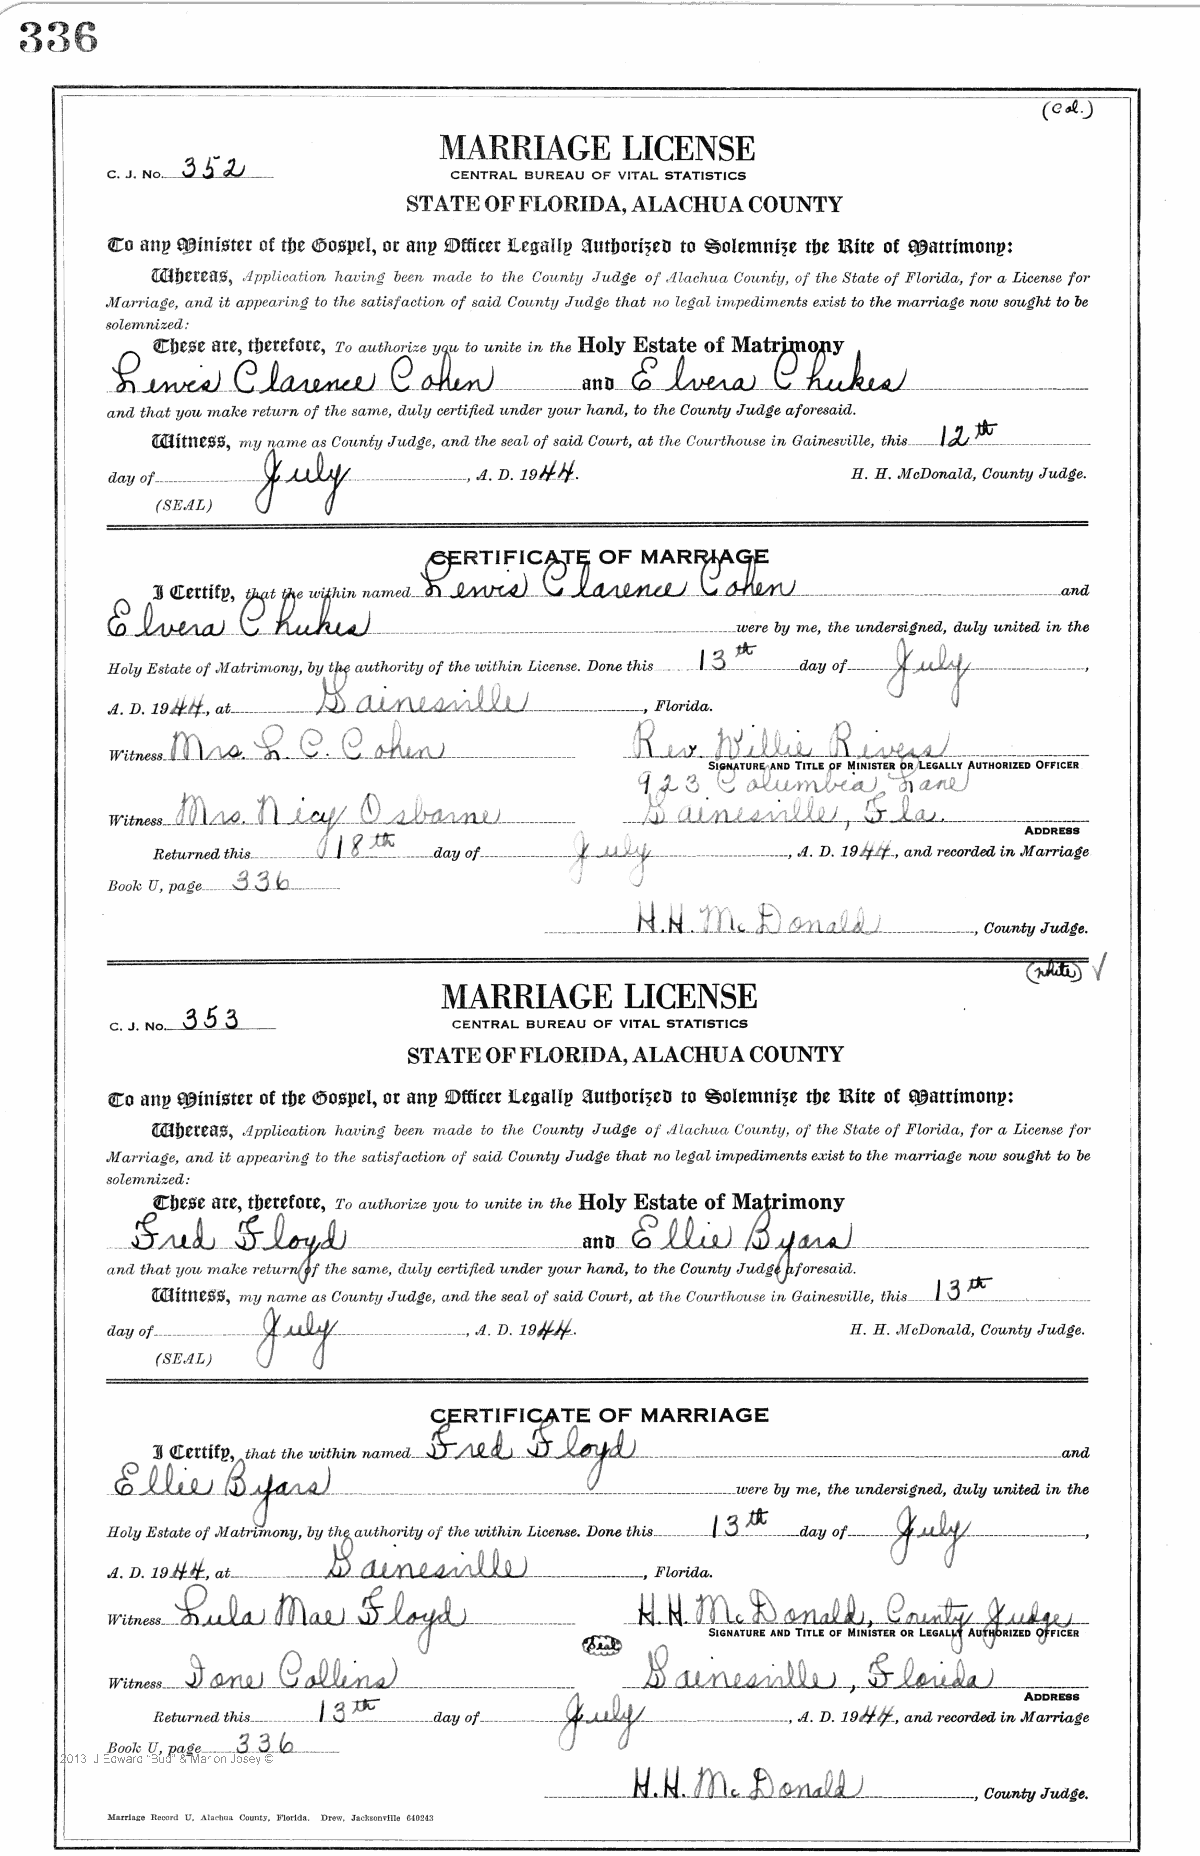 336
(Col.)
MARRIAGE LICENSE
C. J. No. 352
CENTRAL BUREAU OF VITAL STATISTICS
STATE OF FLORIDA, ALACHUA COUNTY
To any Minister of the Gospel, or any Officer Legally Authorized to Solemnize the Rite of Matrimony:
Whereas, Application having been made to the County Judge of Alachua County, of the State of Florida, for a License for
Marriage, and it appearing to the satisfaction of said County Judge that no legal impediments exist to the marriage now sought to be
solemnized:
These are, therefore, To authorize you to unite in the Holy Estate of Matrimony
Lewis Clarence Cohen and Elvera Chukes
and that you make return of the same, duly certified under your hand, to the County Judge aforesaid.
Witness, my name as County Judge, and the seal of said Court, at the Courthouse in Gainesville, this 12th
day of July, A. D. 1944. H. H. McDonald, County Judge.
(SEAL)
CERTIFICATE OF MARRIAGE
I Certify, that the within named Lewis Clarence Cohen and
Elvera Chukes were by me, the undersigned, duly united in the
Holy Estate of Matrimony, by the authority of the within License. Done this 13th day of July,
A. D. 1944, at Gainesville, Florida.
Witness Mrs. L. C. Cohen Rev. Willie Rivers
SIGNATURE AND TITLE OF MINISTER OR LEGALLY AUTHORIZED OFFICER
923 Columbia Lane
Witness Mrs. Nicy Osborne Gainesville, Fla.
ADDRESS
Returned this 18th day of July, A. D. 1944, and recorded in Marriage
Book U, page 336
H.H. McDonald, County Judge.
(white) ✓
MARRIAGE LICENSE
C. J. No. 353
CENTRAL BUREAU OF VITAL STATISTICS
STATE OF FLORIDA, ALACHUA COUNTY
To any Minister of the Gospel, or any Officer Legally Authorized to Solemnize the Rite of Matrimony:
Whereas, Application having been made to the County Judge of Alachua County, of the State of Florida, for a License for
Marriage, and it appearing to the satisfaction of said County Judge that no legal impediments exist to the marriage now sought to be
solemnized:
These are, therefore, To authorize you to unite in the Holy Estate of Matrimony
Fred Floyd and Ellie Byars
and that you make return of the same, duly certified under your hand, to the County Judge aforesaid.
Witness, my name as County Judge, and the seal of said Court, at the Courthouse in Gainesville, this 13th
day of July, A. D. 1944. H. H. McDonald, County Judge.
(SEAL)
CERTIFICATE OF MARRIAGE
I Certify, that the within named Fred Floyd and
Ellie Byars were by me, the undersigned, duly united in the
Holy Estate of Matrimony, by the authority of the within License. Done this 13th day of July,
A. D. 1944, at Gainesville, Florida.
Witness Lula Mae Floyd H.H. McDonald, County Judge
SIGNATURE AND TITLE OF MINISTER OR LEGALLY AUTHORIZED OFFICER
Seal
Witness Ione Collins Gainesville, Florida
ADDRESS
Returned this 13th day of July, A. D. 1944, and recorded in Marriage
Book U, page 336
2013 J Edward "Bud" & Marion Josey ©
H.H. McDonald, County Judge.
Marriage Record U, Alachua County, Florida. Drew, Jacksonville 640243